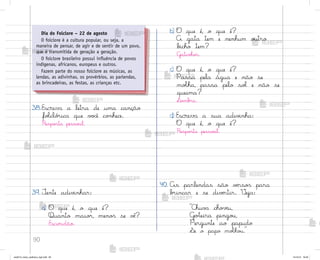 Dia do Folclore – 22 de agosto
O folclore é a cultura popular, ou seja, a
maneira de pensar, de agir e de sentir de um povo,
que é transmitida de geração a geração.
O folclore brasileiro possui influência de povos
indígenas, africanos, europeus e outros.
Fazem parte do nosso folclore as músicas, as
lendas, as adivinhas, os provérbios, as parlendas,
as brincadeiras, as festas, as crianças etc.
38. Escreva a letra de uma canção
folclórica que você conhece.
Resposta pessoal.
39. Tente adivinhar:
a) O que é, o que é?
Quanto maior, menos se vê?
Escuridão.
90
b) O que é, o que é?
A gata tem e nenhum outro
bicho tem?
Gatinhos.
c) O que é, o que é?
Passa pela água e não se
molha, passa pelo sol e não se
queima?
Sombra.
d) Escreva a sua adivinha:
O que é, o que é?
Resposta pessoal.
40. As parlendas são versos para
brincar e se divertir. Veja:
"Chuva choveu,
Goteira pingou,
Pergunte ao papudo
Se o papo molhou."